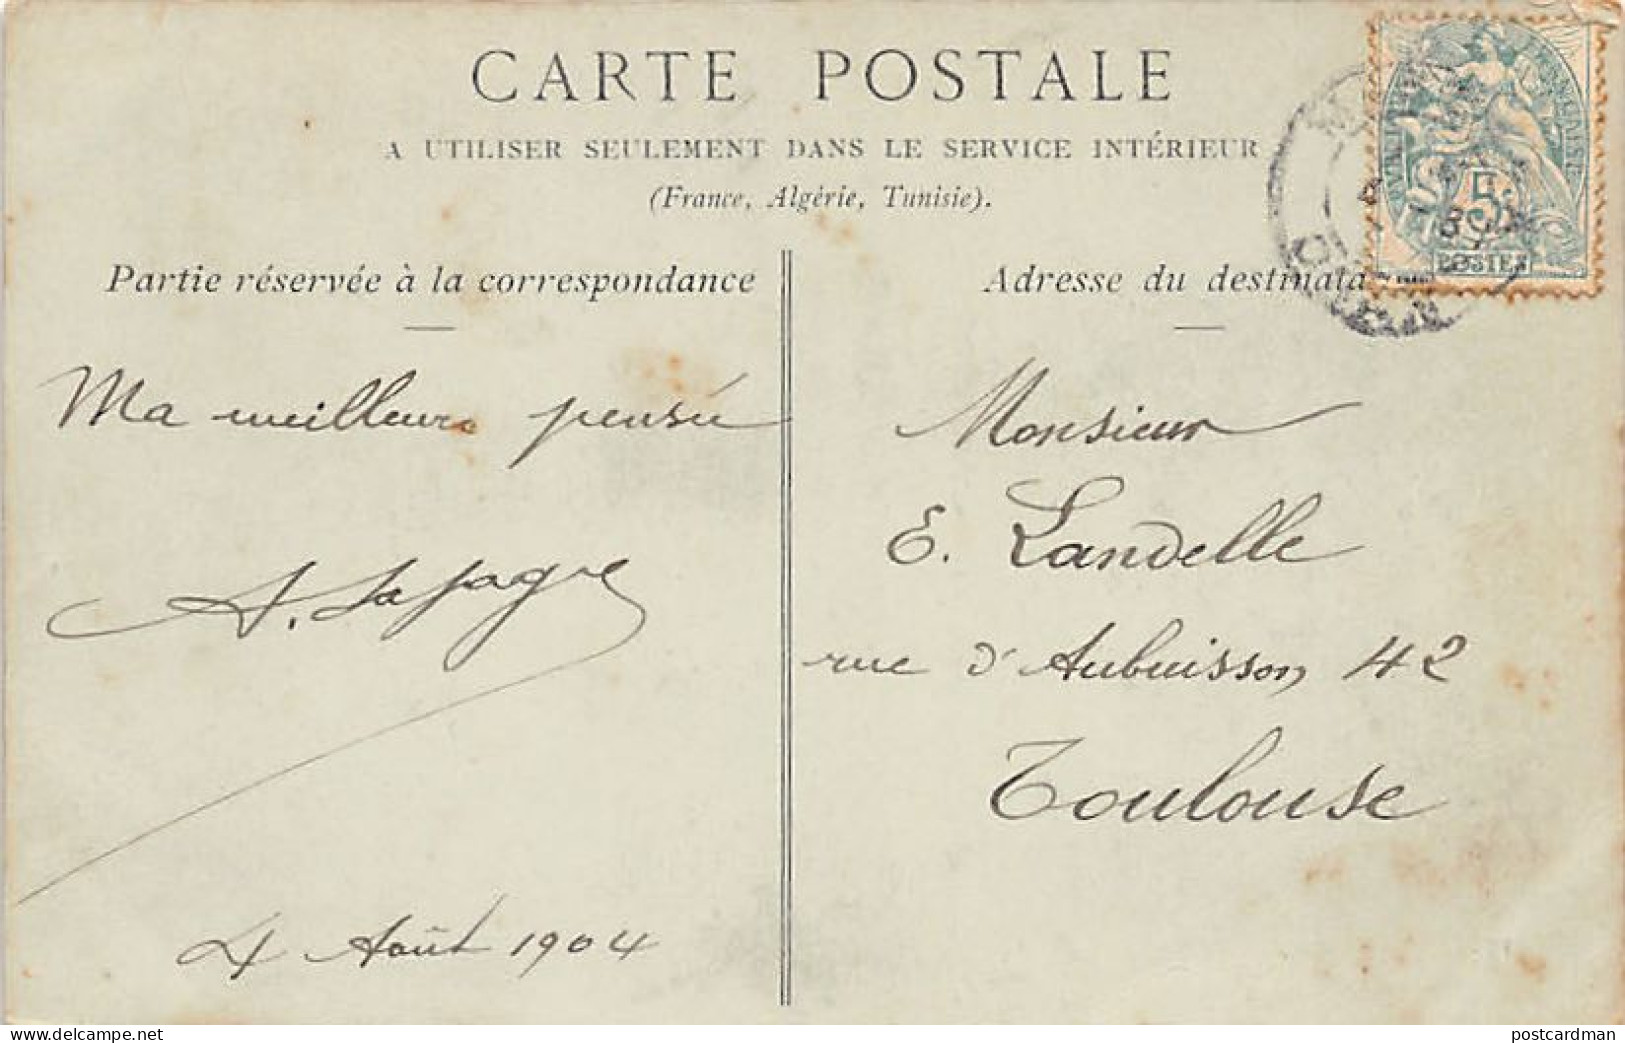 CARTE POSTALE
A UTILISER SEULEMENT DANS LE SERVICE INTÉRIEUR
(France, Algérie, Tunisie).
Partie réservée à la correspondance
Ma meilleure pensée
A. Lafagre
4 Août 1904
Adresse du destinata
Monsieur
E. Landelle
rue d'Aubuisson, 42
Toulouse
5
POSTES
www.delcampe.net
postcardman